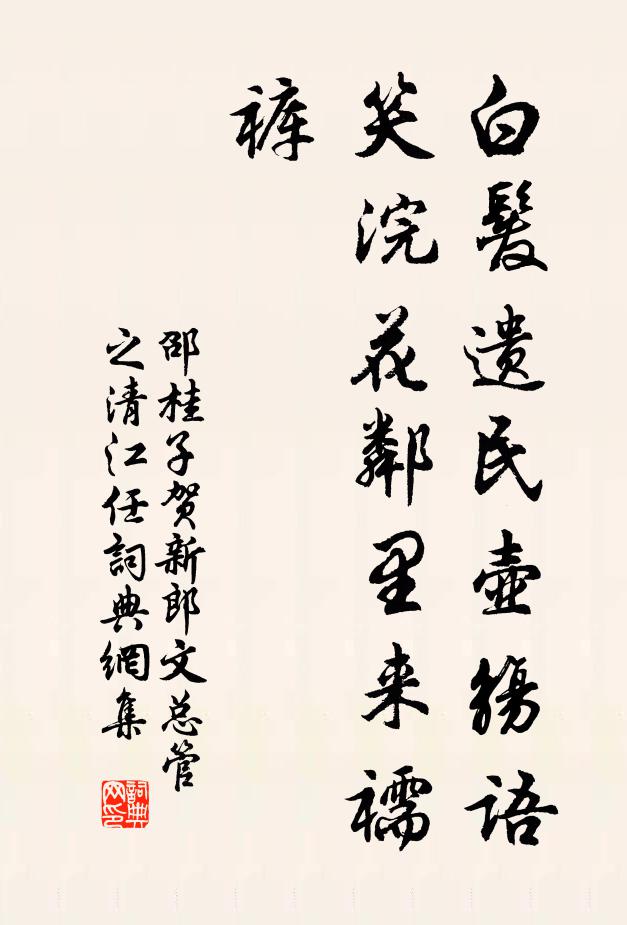 白髮遗民壶觞语
笑浣花鄰里来襦
裤
邵桂子贺新郎文总管
之清江任詞典網集
詞典网印